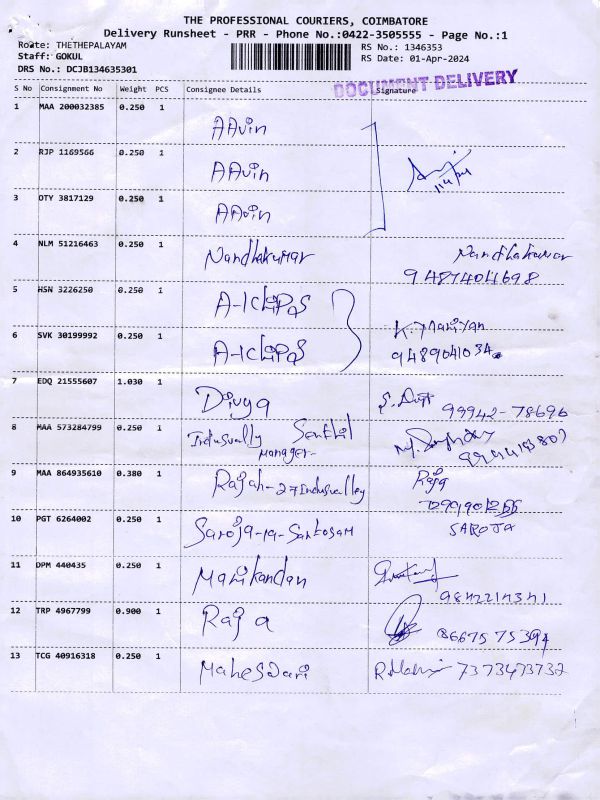 THE PROFESSIONAL COURIERS, COIMBATORE
Delivery Runsheet - PRR - Phone No.:0422-3505555 - Page No.:1
Route: THETHEPALAYAM
RS No.: 1346353
Staff: GOKUL
RS Date: 01-Apr-2024
DRS No.: DCJB134635301
DOCUMENT DELIVERY
S No Consignment No Weight PCS Consignee Details Signature
1 MAA 200032385 0.250 1 AAvin
2 RJP 1169566 0.250 1 AAvin
1/4/24
3 OTY 3817129 0.250 1 AAvin
4 NLM 51216463 0.250 1 Nandhakumar Nandhakumar
9487404698
5 HSN 3226250 0.250 1
6 SVK 30199992 0.250 1 K. Mariyan
9489041034
7 EDQ 21555607 1.030 1 Divya 99942-78696
8 MAA 573284799 0.250 1 Indusvally Senthil
Manager-
9 MAA 864935610 0.380 1 Rajah-27 Indusvalley Raja
10 PGT 6264002 0.250 1 Saroja SAROJA
11 DPM 440435 0.250 1 Manikandan
12 TRP 4967799 0.900 1 Raja 8667575394
13 TCG 40916318 0.250 1 Maheswari 7373473737